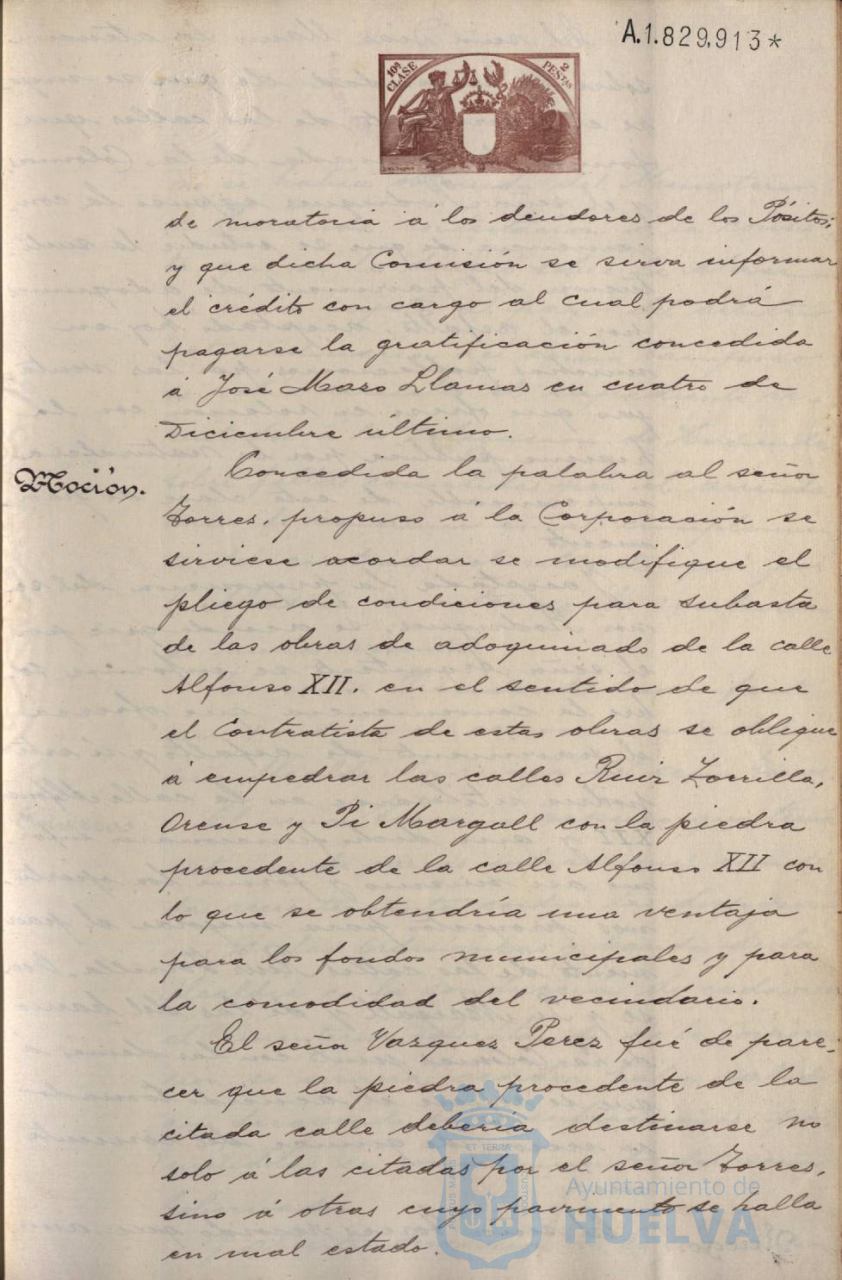 A.1.829.913*
10ª CLASE
2 PESTAS
de moratoria á los deudores de los Pósitos;
y que dicha Comisión se sirva informar
el crédito con cargo al cual podrá
pagarse la gratificación concedida
á José Mazo Llamas en cuatro de
Diciembre último.
Moción.
Concedida la palabra al señor
Torres, propuso á la Corporación se
sirviese acordar se modifique el
pliego de condiciones para subasta
de las obras de adoquinado de la calle
Alfonso XII. en el sentido de que
el Contratista de estas obras se obligue
á empedrar las calles Ruiz Zorrilla,
Orense y Pi Margall con la piedra
procedente de la calle Alfonso XII con
lo que se obtendría una ventaja
para los fondos municipales y para
la comodidad del vecindario.
El señor Vazquez Perez fué de pare-
cer que la piedra procedente de la
citada calle debería destinarse no
solo á las citadas por el señor Torres,
sino á otras cuyo pavimento se halla
en mal estado.
Ayuntamiento de
HUELVA